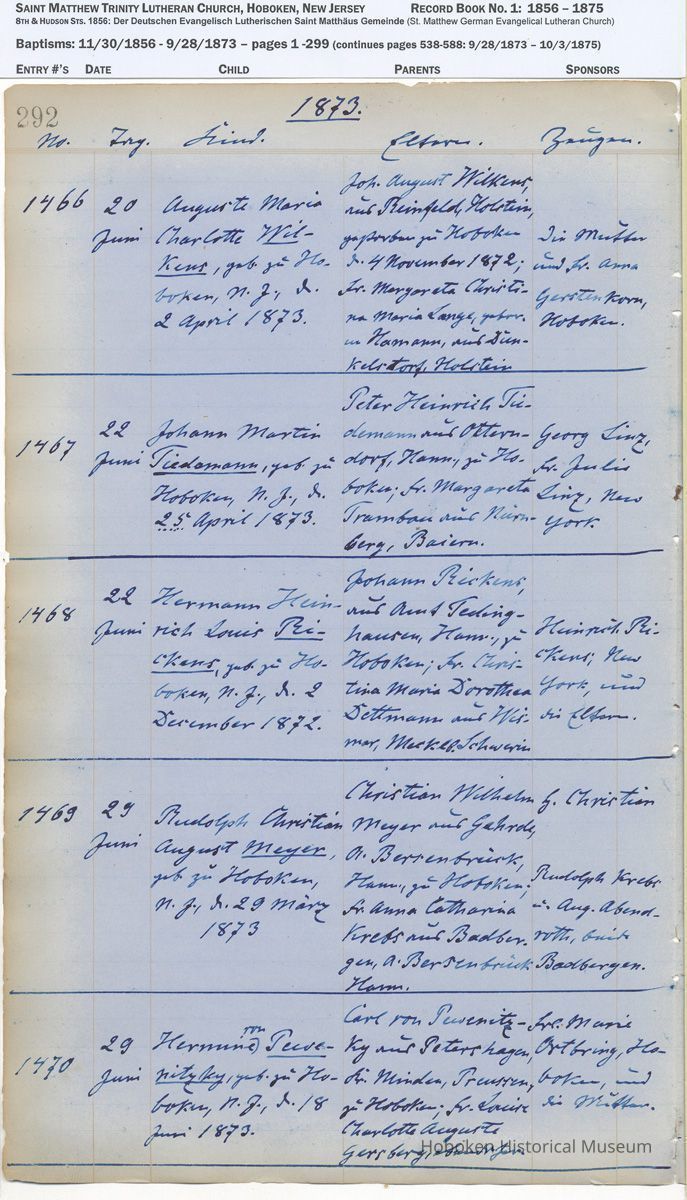 SAINT MATTHEW TRINITY LUTHERAN CHURCH, HOBOKEN, NEW JERSEY RECORD BOOK NO. 1: 1856 – 1875
8TH & HUDSON STS. 1856: Der Deutschen Evangelisch Lutherischen Saint Matthäus Gemeinde (St. Matthew German Evangelical Lutheran Church)
Baptisms: 11/30/1856 - 9/28/1873 – pages 1 -299 (continues pages 538-588: 9/28/1873 – 10/3/1875)
ENTRY #'S DATE CHILD PARENTS SPONSORS
292
1873.
No. Tag. Kind. Eltern. Zeugen.
1466
20
Juni
Auguste Maria
Charlotte Wil-
kens, geb. zu Ho-
boken, N. J., d.
2 April 1873.
Joh. August Wilkens,
aus Reinfeld, Holstein,
gestorben zu Hoboken
d. 4 November 1872;
Fr. Margareta Christi-
na Maria Lange, gebor-
ne Hamann, aus Dun-
kelsdorf, Holstein
Die Mutter
und Fr. Anna
Gerstenkorn,
Hoboken.
1467
22
Juni
Johann Martin
Tiedemann, geb. zu
Hoboken, N. J., d.
25 April 1873.
Peter Heinrich Tie-
demann aus Ottern-
dorf, Hann., zu Ho-
boken; Fr. Margareta
Trambau aus Nürn-
berg, Baiern.
Georg Linz,
Fr. Julie
Linz, New
York.
1468
22
Juni
Hermann Hein-
rich Louis Ri-
ckens, geb. zu Ho-
boken, N. J., d. 2
December 1872.
Johann Rickens,
aus Amt Teding-
hausen, Hann., zu
Hoboken; Fr. Chris-
tina Maria Dorothea
Dettmann aus Wis-
mar, Meckl. Schwerin
Heinrich Ri-
ckens, New
York, und
die Eltern.
1469
29
Juni
Rudolph Christian
August Meyer,
geb. zu Hoboken,
N. J., d. 29 März
1873
Christian Wilhelm
Meyer aus Gehrde,
A. Bersenbrück,
Hann., zu Hoboken;
Fr. Anna Catharina
Krebs aus Badber-
gen, A. Bersenbrück
Hann.
G. Christian
Rudolph Krebs
u. Aug. Abend-
roth, beide
Badbergen.
1470
29
Juni
Hermine von Pewe-
nitzky, geb. zu Ho-
boken, N. J., d. 18
Juni 1873.
Carl von Pewenitz-
ky aus Petershagen,
Kr. Minden, Preussen,
zu Hoboken; Fr. Louise
Charlotte Auguste
Frl. Marie
Ortbring, Ho-
boken, und
die Mutter.
Hoboken Historical Museum